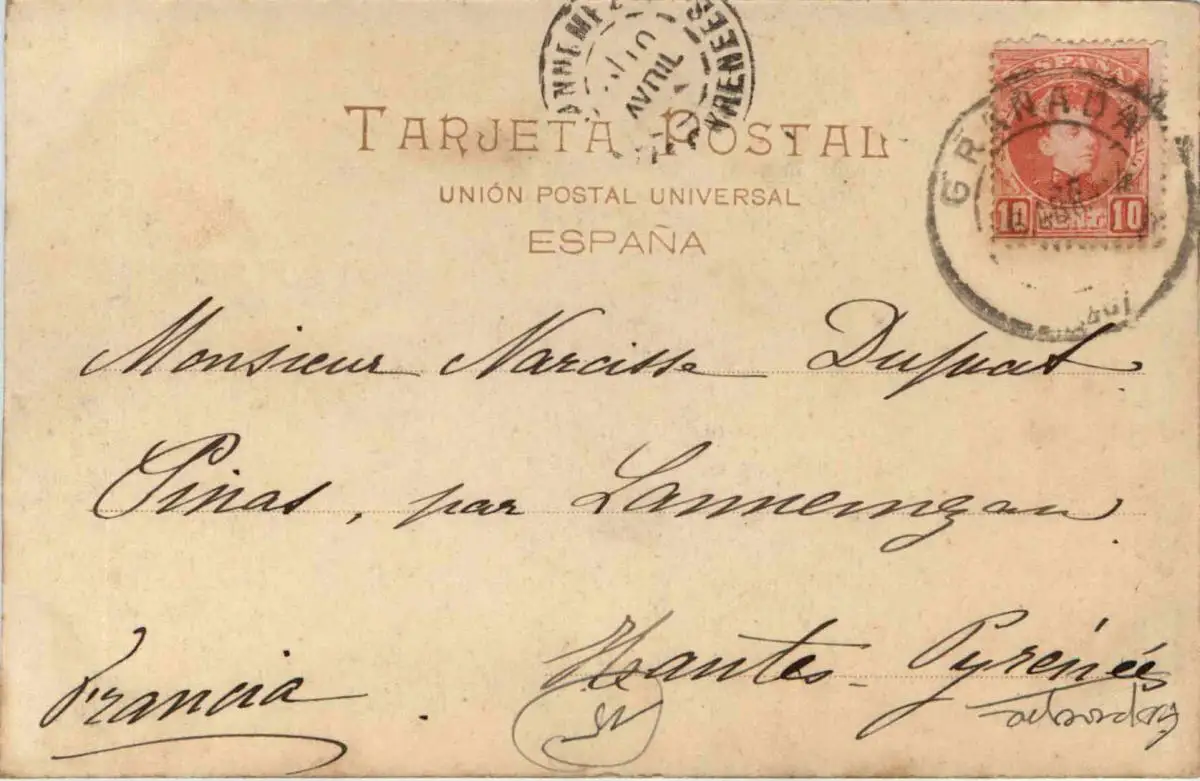 TARJETA POSTAL
UNIÓN POSTAL UNIVERSAL
ESPAÑA
AVRIL
ESPAÑA
GRANADA
10 CENT. 10
Monsieur Narcisse Dupuat
Pinas, par Lannemezan
Hautes-Pyrénées
Francia